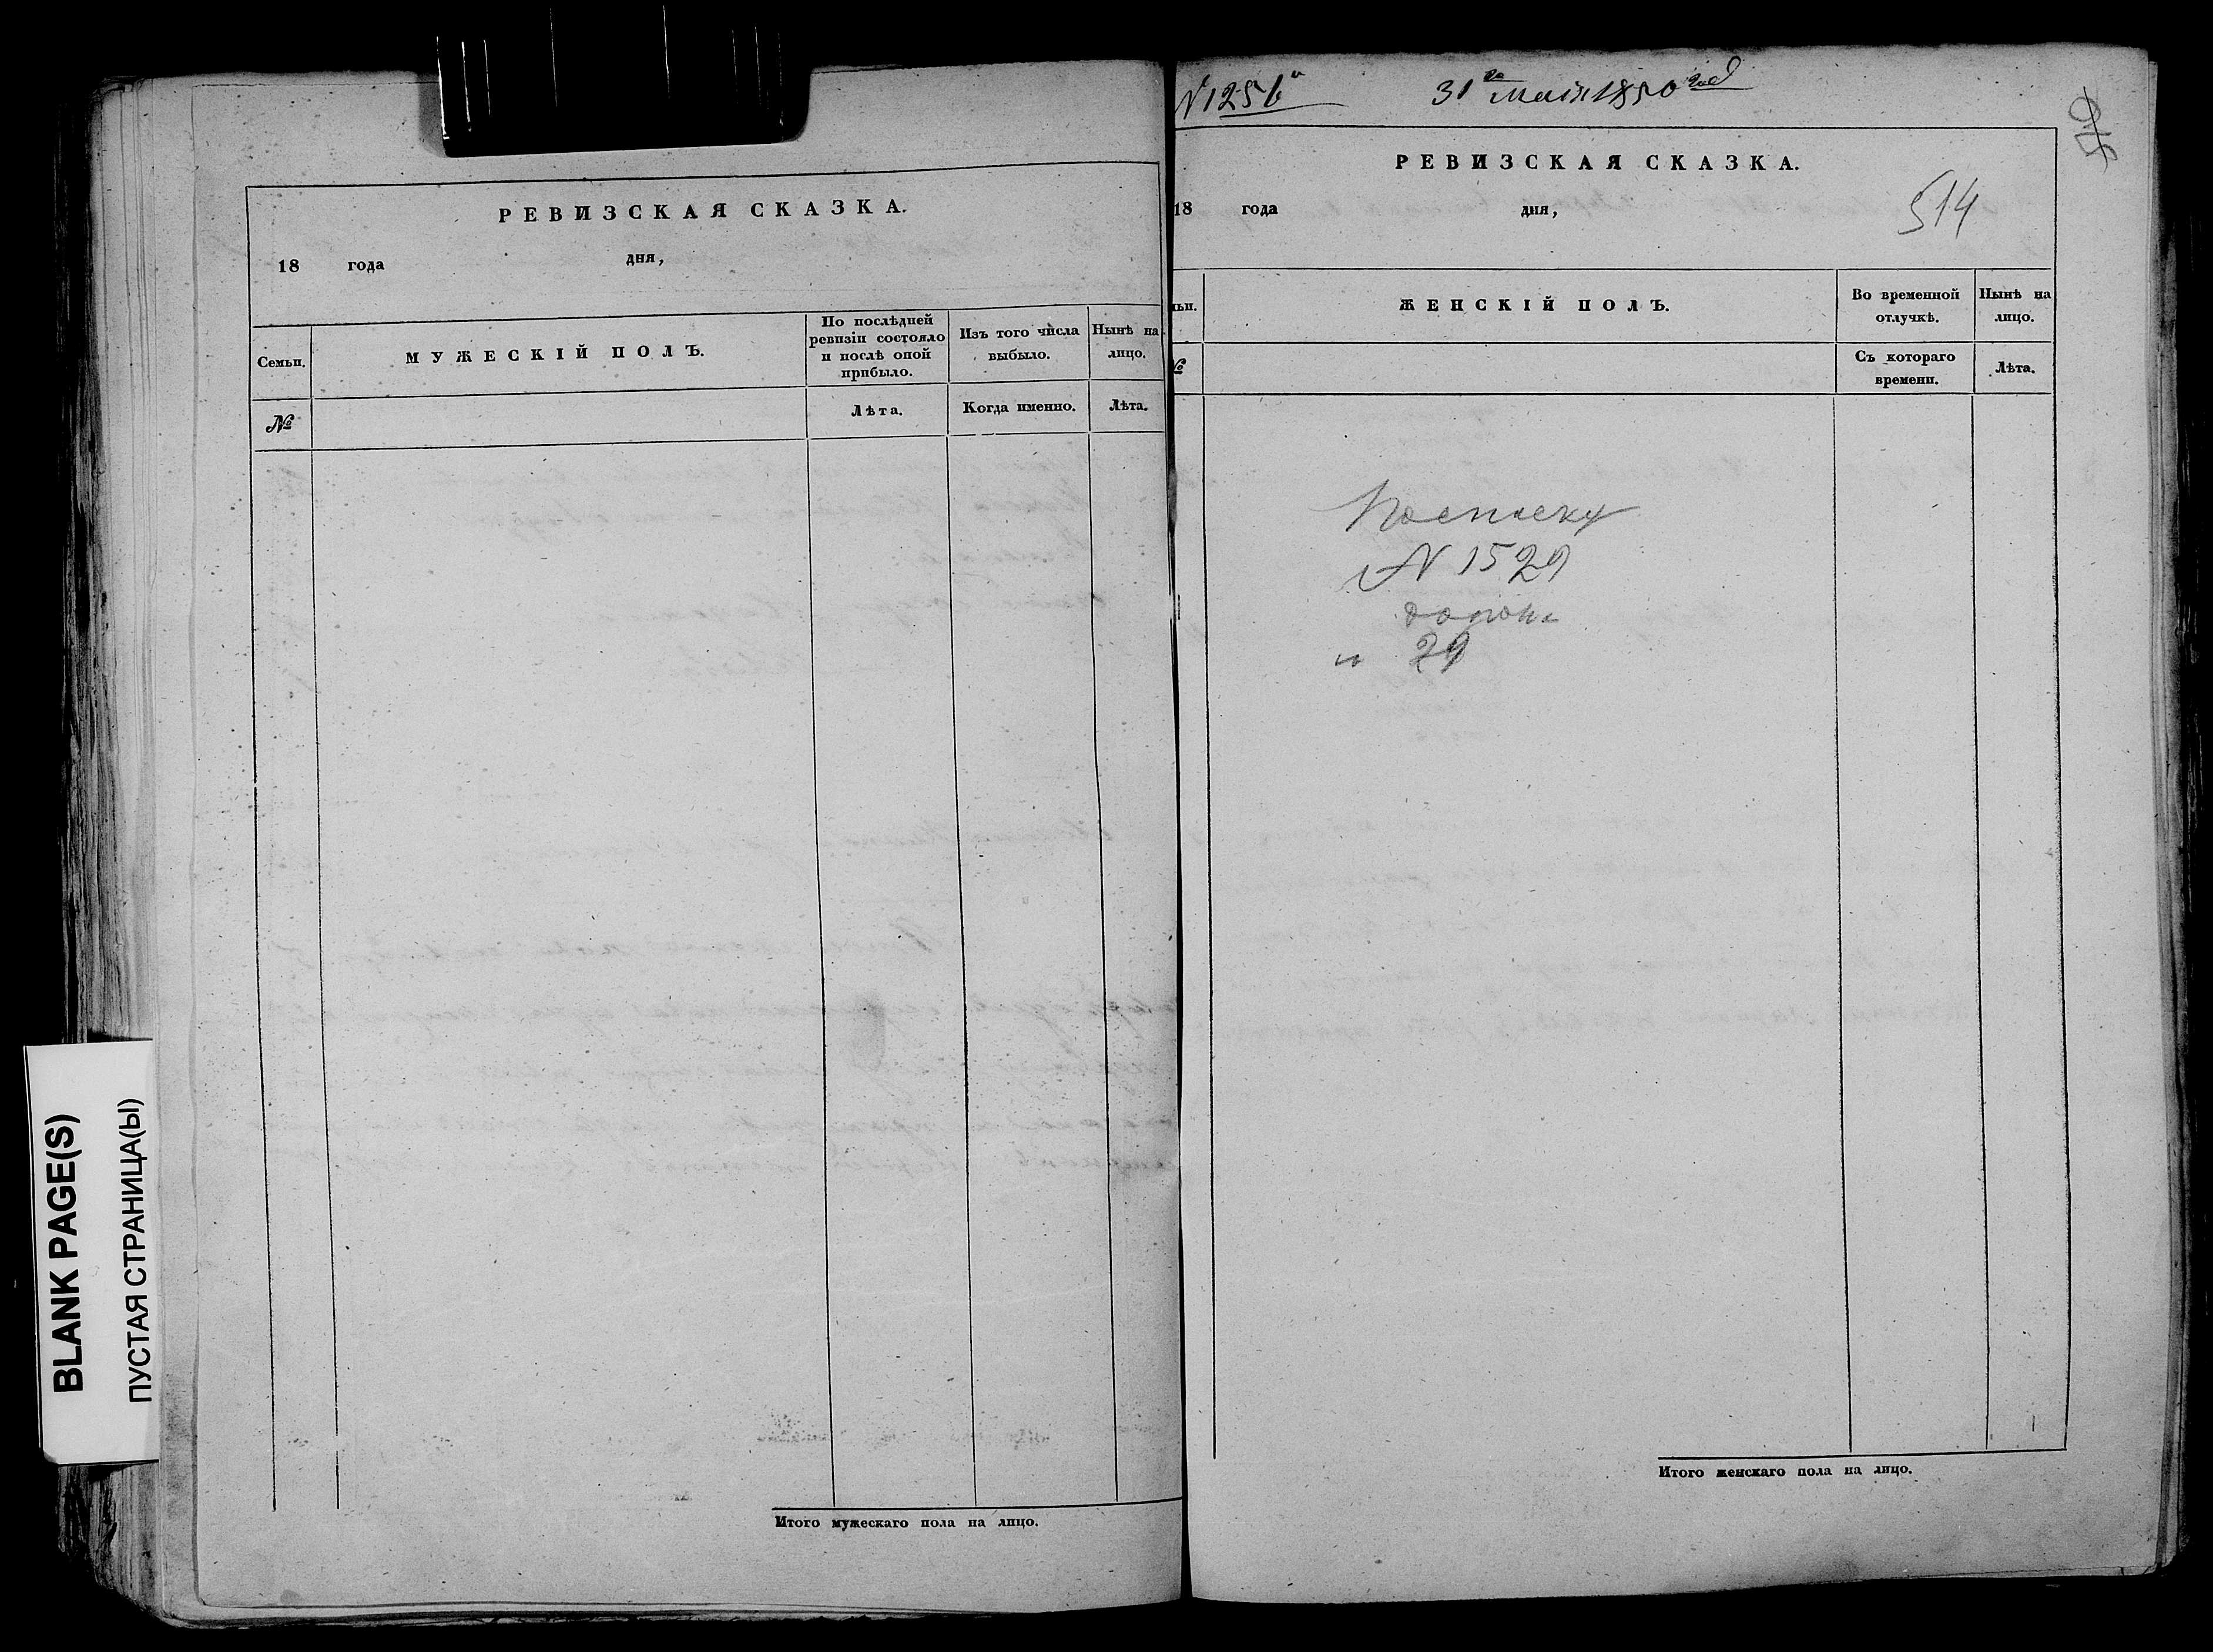 BLANK PAGE(S)
ПУСТАЯ СТРАНИЦА(Ы)
РЕВИЗСКАЯ СКАЗКА.
18 года дня,
Семьи.
МУЖЕСКІЙ ПОЛЪ.
По послѣдней
ревизіи состояло
и послѣ оной
прибыло.
Изъ того числа
выбыло.
Нынѣ на
лицо.
№
Лѣта.
Когда именно.
Лѣта.
Итого мужескаго пола на лицо.
31го Маія 1850 год
РЕВИЗСКАЯ СКАЗКА.
514
18 года дня,
ьи.
ЖЕНСКІЙ ПОЛЪ.
Во временной
отлучкѣ.
Нынѣ на
лицо.
№
Съ котораго
времени.
Лѣта.
По списку
N 1529
29
Итого женскаго пола на лицо.